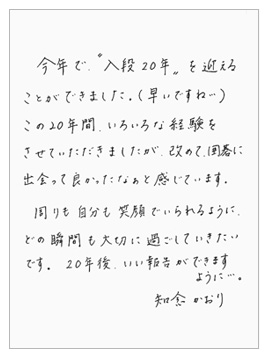 今年で、〝入段20年〟を迎える
ことができました。(早いですね…)
この20年間、いろいろな経験を
させていただきましたが、改めて、囲碁に
出会って良かったなぁと感じています。
周りも自分も笑顔でいられるように、
どの瞬間も大切に過ごしていきたい
です。20年後、いい報告ができます
ように…。
知念かおり